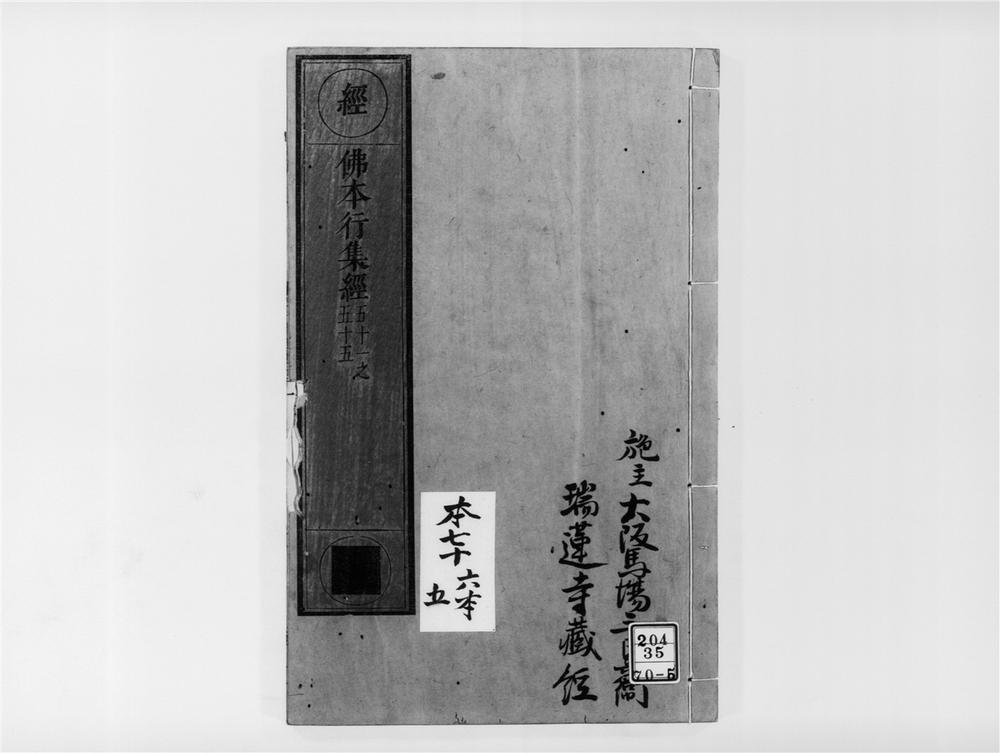 施主大阪馬場三
瑞蓮寺藏經
本七十六本
五
經
佛本行集經
五十一之
五十五
204
35
70-5